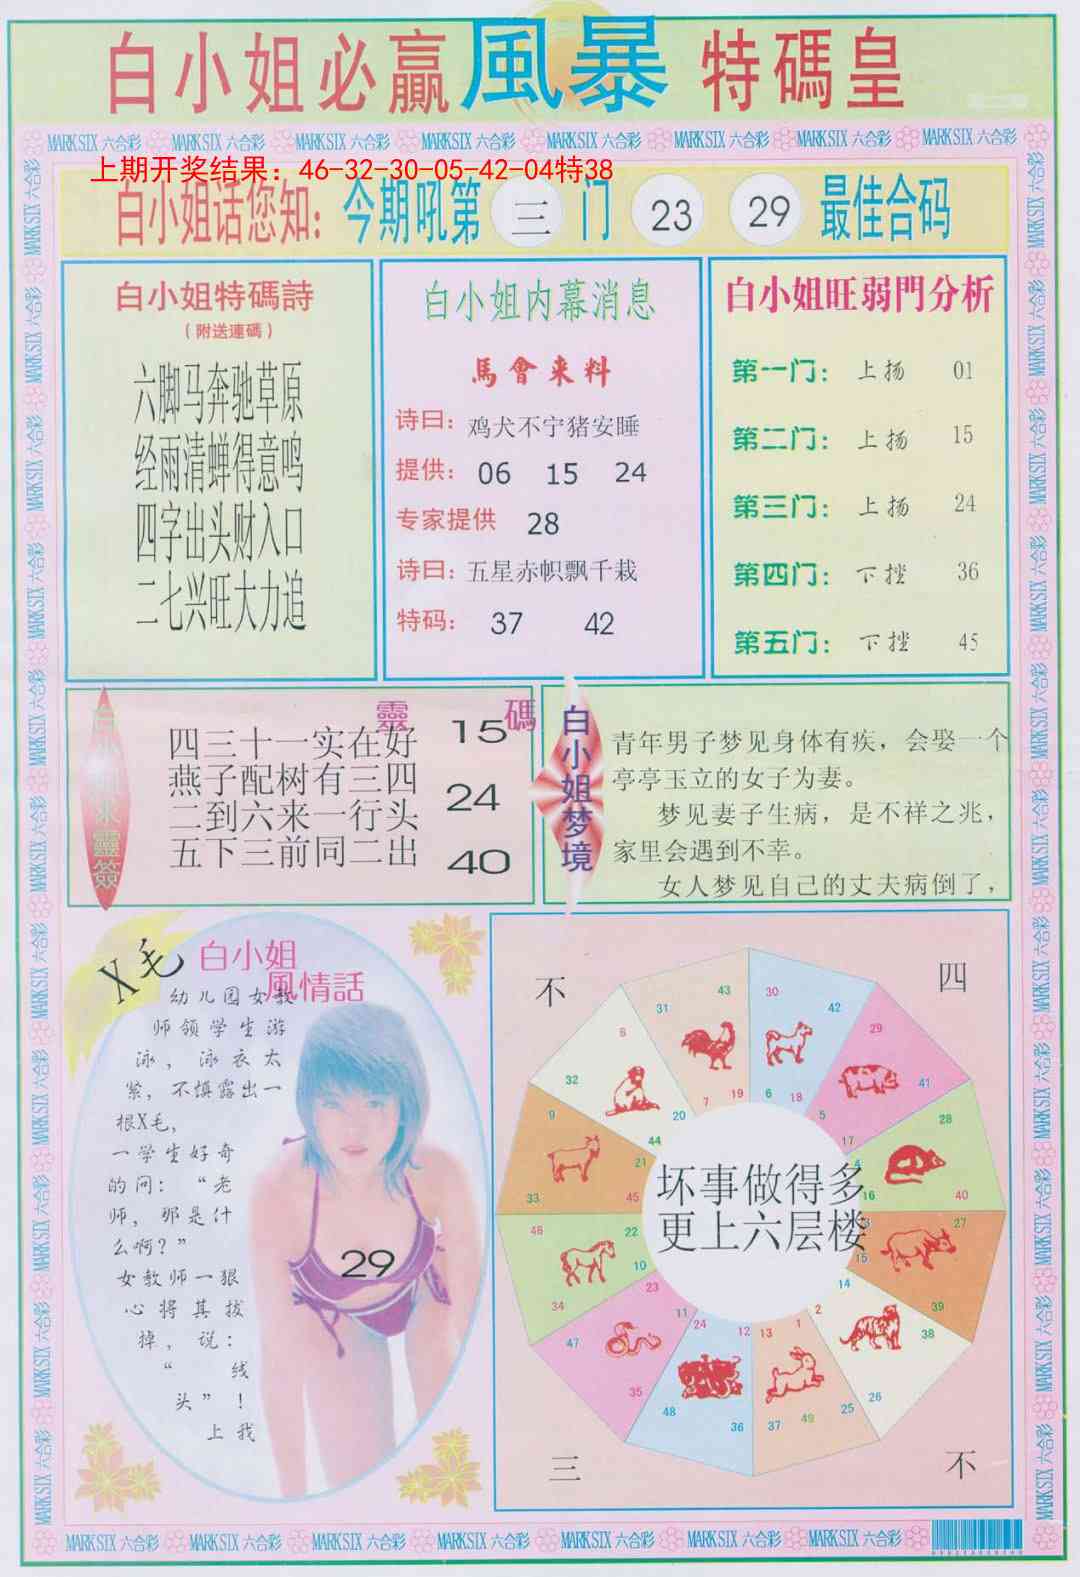 白小姐必贏風暴特碼皇
MARK SIX 六合彩 MARK SIX 六合彩 MARK SIX 六合彩 MARK SIX 六合彩 MARK SIX 六合彩 MARK SIX 六合彩 MARK SIX 六合彩 MARK SIX 六合彩
上期开奖结果：46-32-30-05-42-04特38
白小姐话您知:今期吼第 三 门 23 29 最佳合码
白小姐特碼詩
（附送連碼）
六脚马奔驰草原
经雨清蝉得意鸣
四字出头财入口
二七兴旺大力追
白小姐内幕消息
馬會来料
诗曰: 鸡犬不宁猪安睡
提供: 06 15 24
专家提供 28
诗曰: 五星赤帜飘千栽
特码: 37 42
白小姐旺弱門分析
第一门: 上扬 01
第二门: 上扬 15
第三门: 上扬 24
第四门: 下挫 36
第五门: 下挫 45
靈碼
四三十一实在好
燕子配树有三四
二到六来一行头
五下三前同二出
15
24
40
白小姐梦境
青年男子梦见身体有疾，会娶一个
亭亭玉立的女子为妻。
梦见妻子生病，是不祥之兆，
家里会遇到不幸。
女人梦见自己的丈夫病倒了，
X毛
白小姐
風情話
幼儿园女教
师领学生游
泳，泳衣太
紧，不慎露出一
根X毛，
一学生好奇
的问：“老
师，那是什
么啊？”
女教师一狠
心将其拔
掉，说：
“线
头”！
上我
29
不
四
31 43 30 42
8 29
32 7 19 6 18 5 41
9 20 17 28
44 4
21 16 40
33 45
坏事做得多
更上六层楼
46 22 3 27
10 15
34 23 14 39
47 11 24 12 13 1 2 38
35 26
48 36 37 49 25
三
不
MARK SIX 六合彩 MARK SIX 六合彩 MARK SIX 六合彩 MARK SIX 六合彩 MARK SIX 六合彩 MARK SIX 六合彩 MARK SIX 六合彩